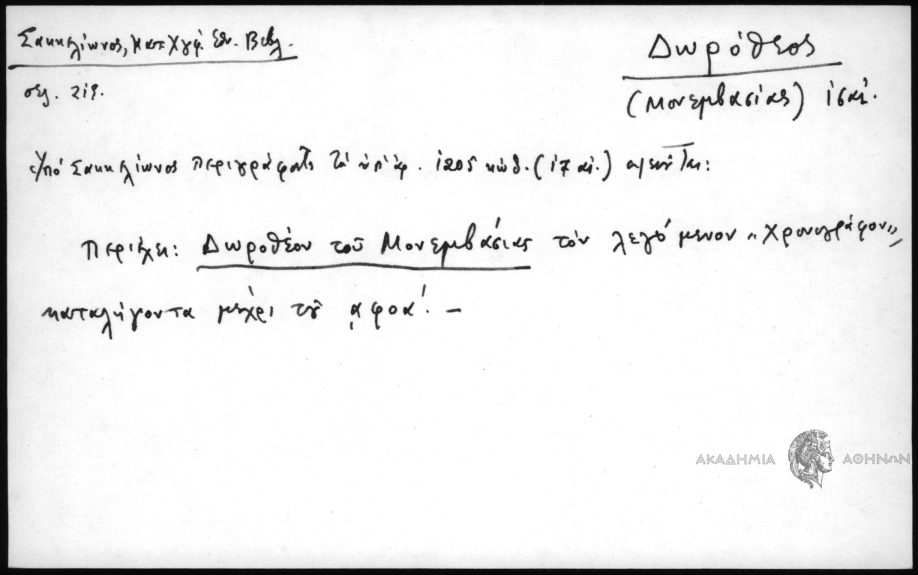 Σακκελίωνος, Κατ. Χγφ. Ἐθ. Βιβλ.
σελ. 219.
Δωρόθεος
(Μονεμβασίας)
Ὑπὸ Σακκελίωνος περιγράφεται
Περιέχει: Δωροθέου τοῦ Μονεμβάσιας τὸν λεγόμενον „Χρονογράφον",
καταλήγοντα μέχρι τοῦ ͵αφοα'. –
ΑΚΑΔΗΜΙΑ ΑΘΗΝΩΝ